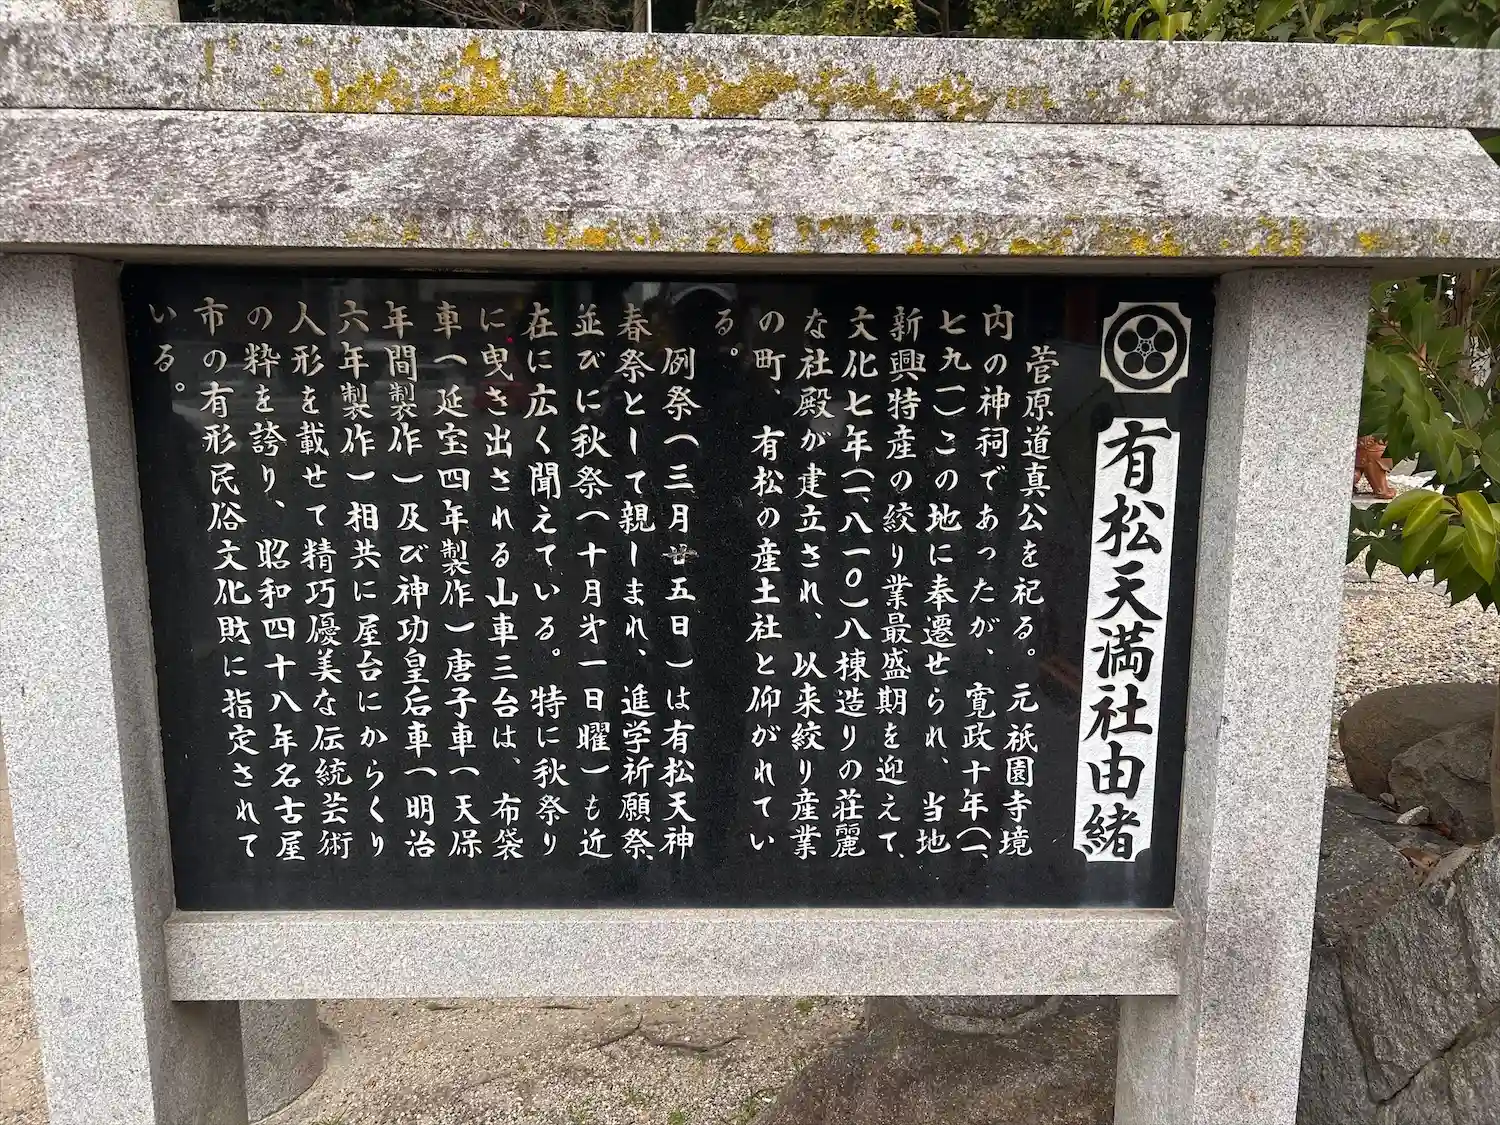 有松天満社由緒
菅原道真公を祀る。元祇園寺境
内の神祠であったが、寛政十年(一、
七九一)この地に奉遷せられ、当地
新興特産の絞り業最盛期を迎えて、
文化七年(一、八一〇)八棟造りの荘麗
な社殿が建立され、以来絞り産業
の町、有松の産土社と仰がれてい
る。
例祭(三月廿五日)は有松天神
春祭として親しまれ、進学祈願祭、
並びに秋祭(十月第一日曜)も近
在に広く聞えている。特に秋祭り
に曳き出される山車三台は、布袋
車(延宝四年製作)唐子車(天保
年間製作)及び神功皇后車(明治
六年製作)相共に屋台にからくり
人形を載せて精巧優美な伝統芸術
の粋を誇り、昭和四十八年名古屋
市の有形民俗文化財に指定されて
いる。